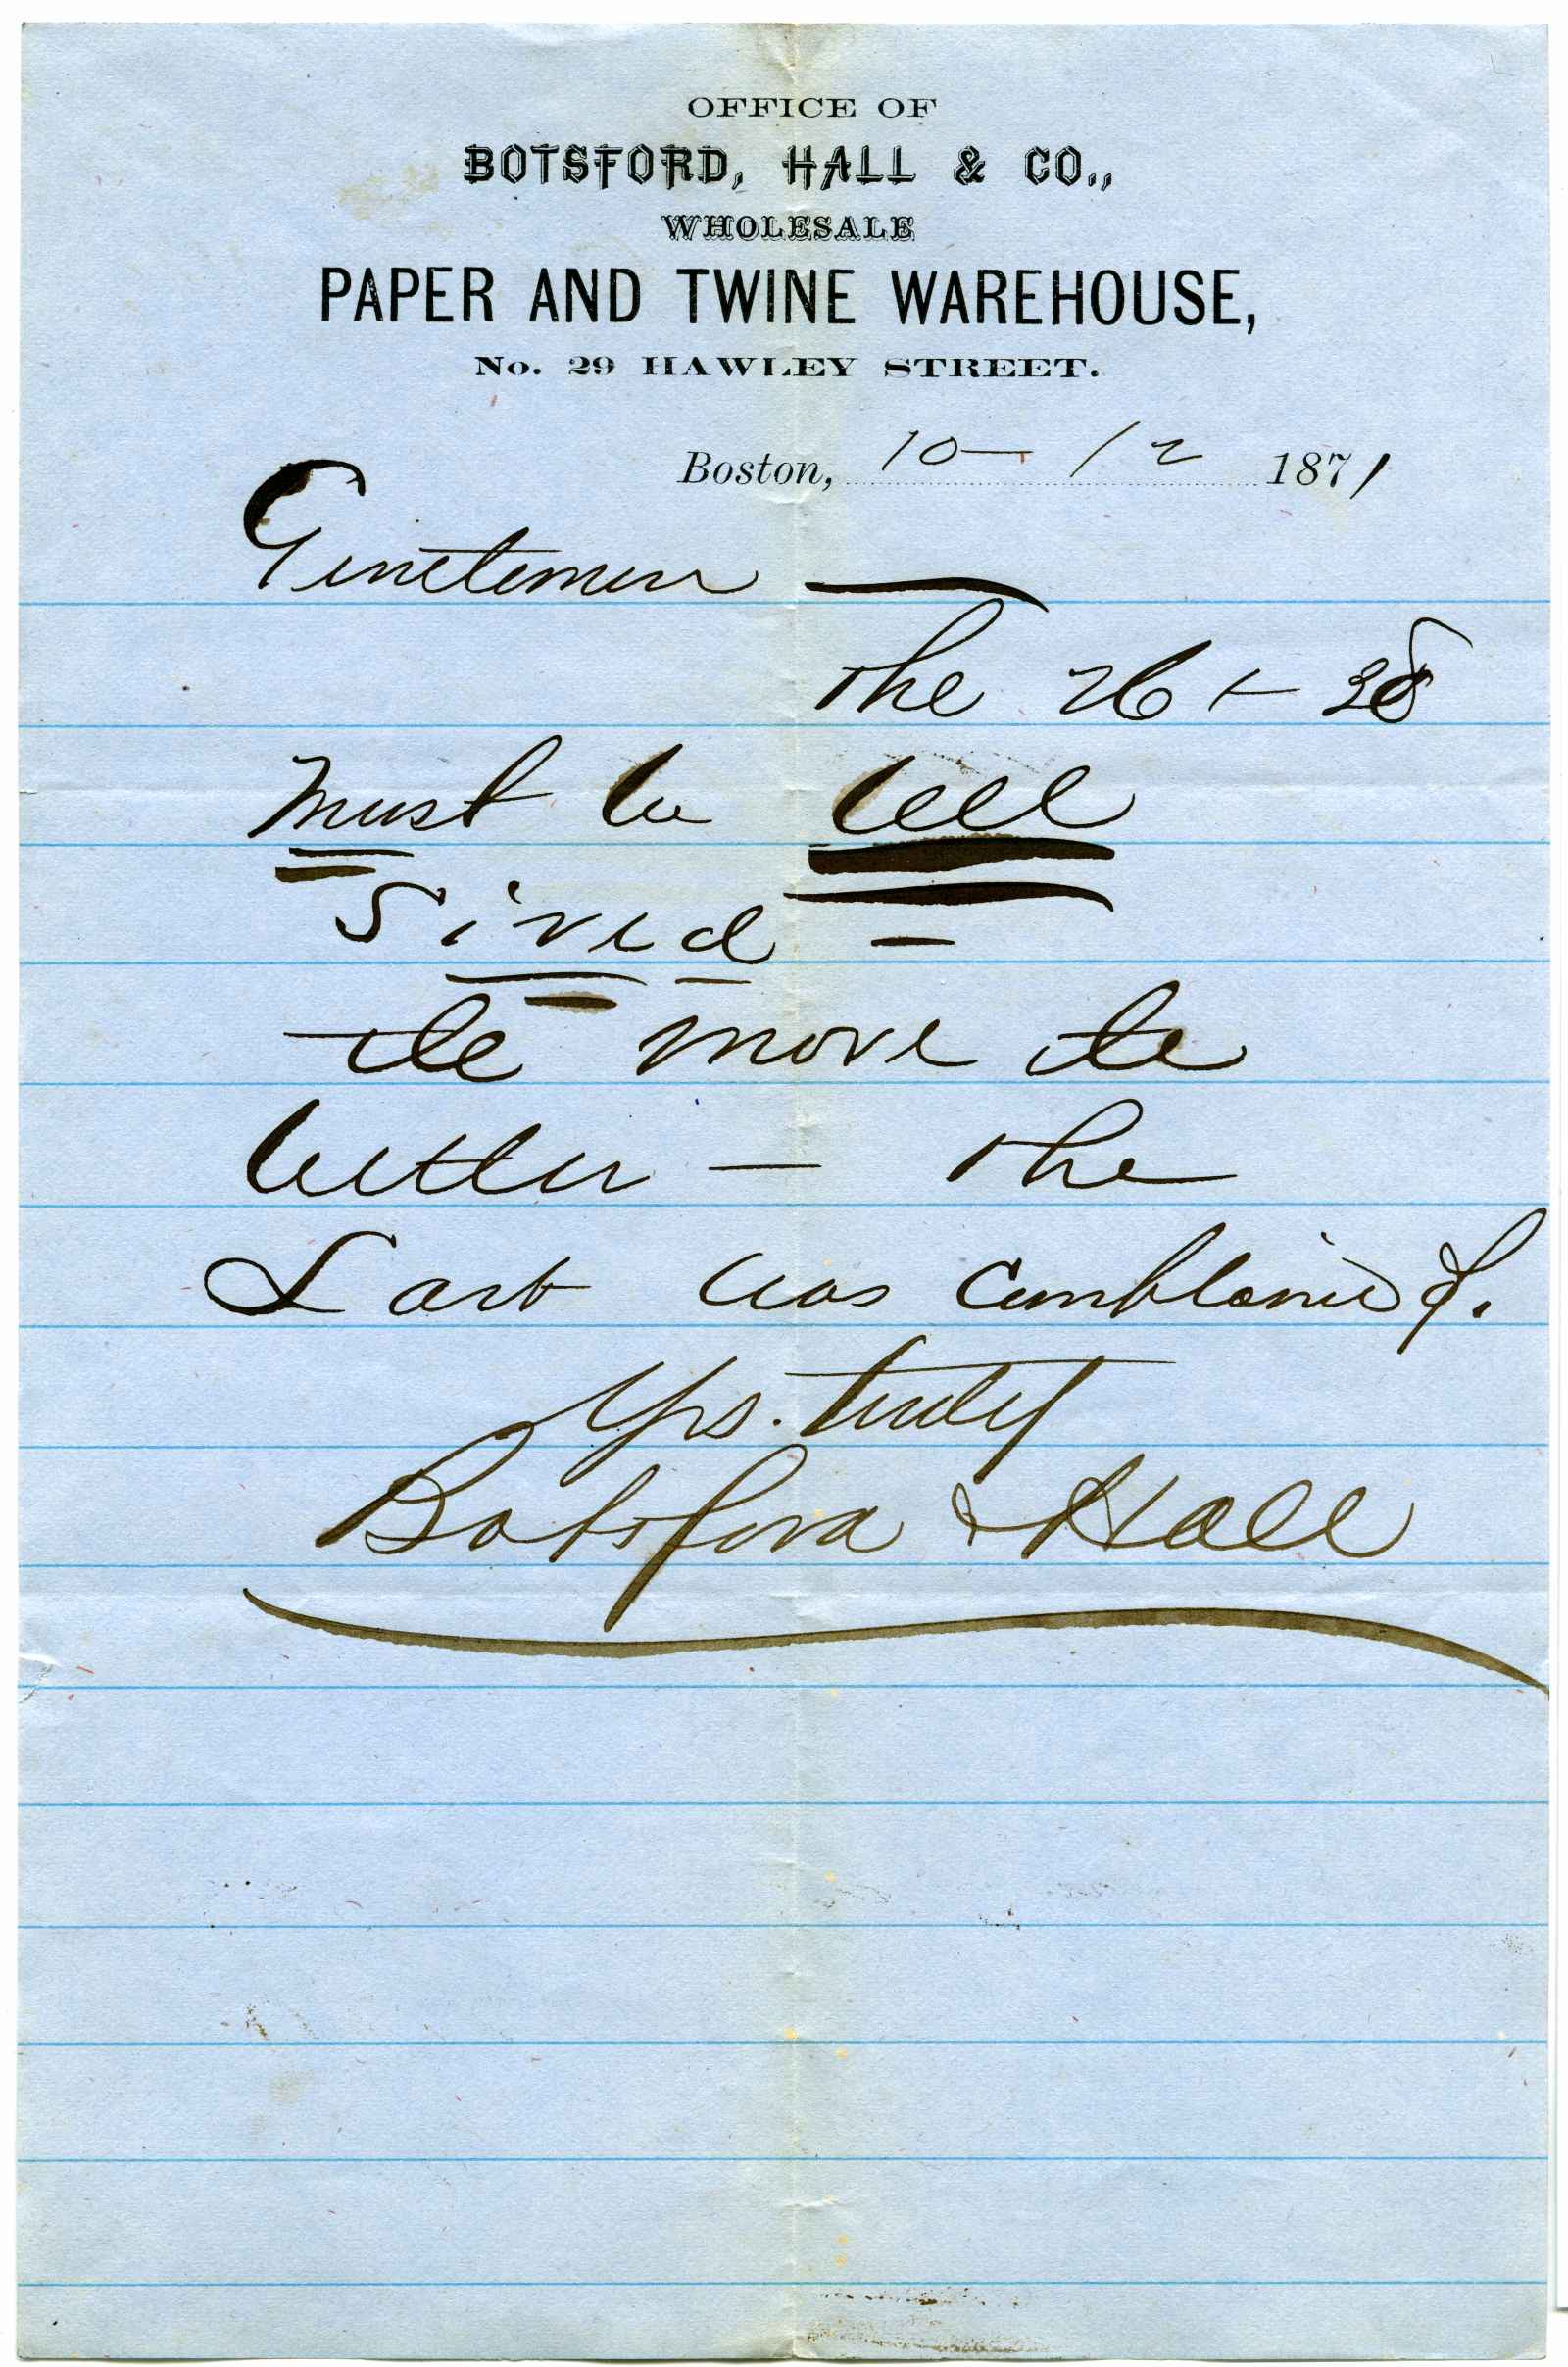 OFFICE OF
BOTSFORD, HALL & CO.,
WHOLESALE
PAPER AND TWINE WAREHOUSE,
No. 29 HAWLEY STREET.
Boston, 10 – 12 1871
Gentlemen —
The 26 + 38
Must be well
Sized –
the more the
better — The
Last was complained of.
Yrs. truly
Botsford & Hall